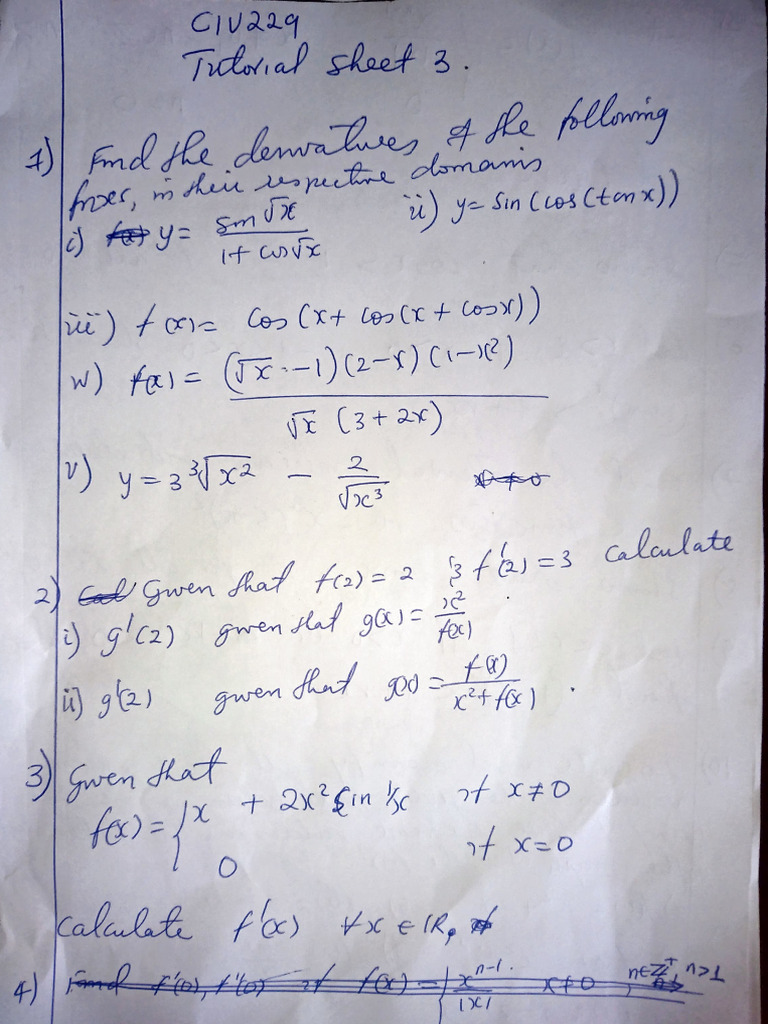 CIV229
Tutorial sheet 3.
1) Find the derivatives of the following
fnxes, in their respective domains
i) f(x) y = sin √x / 1 + cos √x ii) y = sin (cos (tan x))
iii) f(x) = cos (x + cos (x + cos x))
iv) f(x) = (√x - 1) (2 - x) (1 - x²) / √x (3 + 2x)
v) y = 3 ∛x² - 2 / √x³ x ≠ 0
2) Cal Given that f(2) = 2 & f'(2) = 3 calculate
i) g'(2) given that g(x) = x² / f(x)
ii) g'(2) given that g(x) = f(x) / x² + f(x) .
3) Given that
f(x) = { x + 2x² sin 1/x if x ≠ 0
0 if x = 0
Calculate f'(x) ∀x ∈ IR,
4) Find f'(0), f''(0) if f(x) = { x^(n-1) / |x| x ≠ 0, n ∈ Z⁺ n > 1